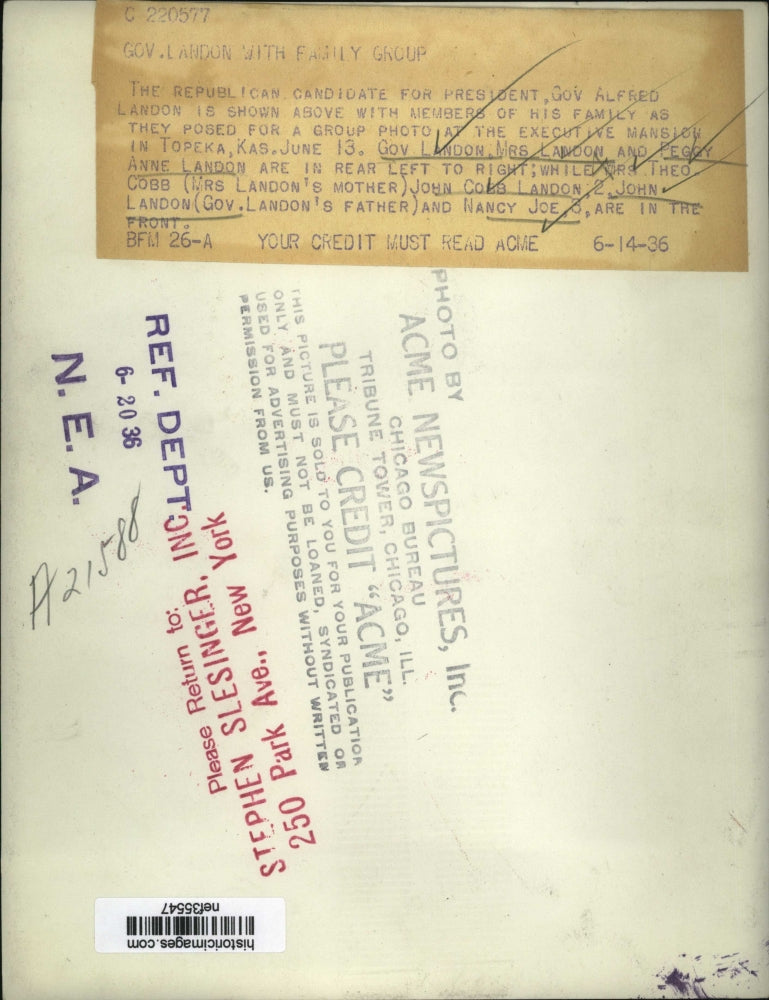 C 220577
GOV. LANDON WITH FAMILY GROUP
THE REPUBLICAN CANDIDATE FOR PRESIDENT, GOV ALFRED
LANDON IS SHOWN ABOVE WITH MEMBERS OF HIS FAMILY AS
THEY POSED FOR A GROUP PHOTO AT THE EXECUTIVE MANSION
IN TOPEKA, KAS. JUNE 13. GOV LANDON, MRS LANDON AND PEGGY
ANNE LANDON ARE IN REAR LEFT TO RIGHT; WHILE MRS. THEO
COBB (MRS LANDON'S MOTHER) JOHN COBB LANDON, 2, JOHN
LANDON (GOV. LANDON'S FATHER) AND NANCY JOE, 3, ARE IN THE
FRONT.
BFM 26-A YOUR CREDIT MUST READ ACME 6-14-36
PHOTO BY
ACME NEWSPICTURES, Inc.
CHICAGO BUREAU
TRIBUNE TOWER, CHICAGO, ILL.
PLEASE CREDIT "ACME"
THIS PICTURE IS SOLD TO YOU FOR YOUR PUBLICATION
ONLY AND MUST NOT BE LOANED, SYNDICATED OR
USED FOR ADVERTISING PURPOSES WITHOUT WRITTEN
PERMISSION FROM US.
REF. DEPT.
6- 20 36
N. E. A.
A21588
Please Return to:
STEPHEN SLESINGER, INC.
250 Park Ave., New York
historicimages.com
nef35547